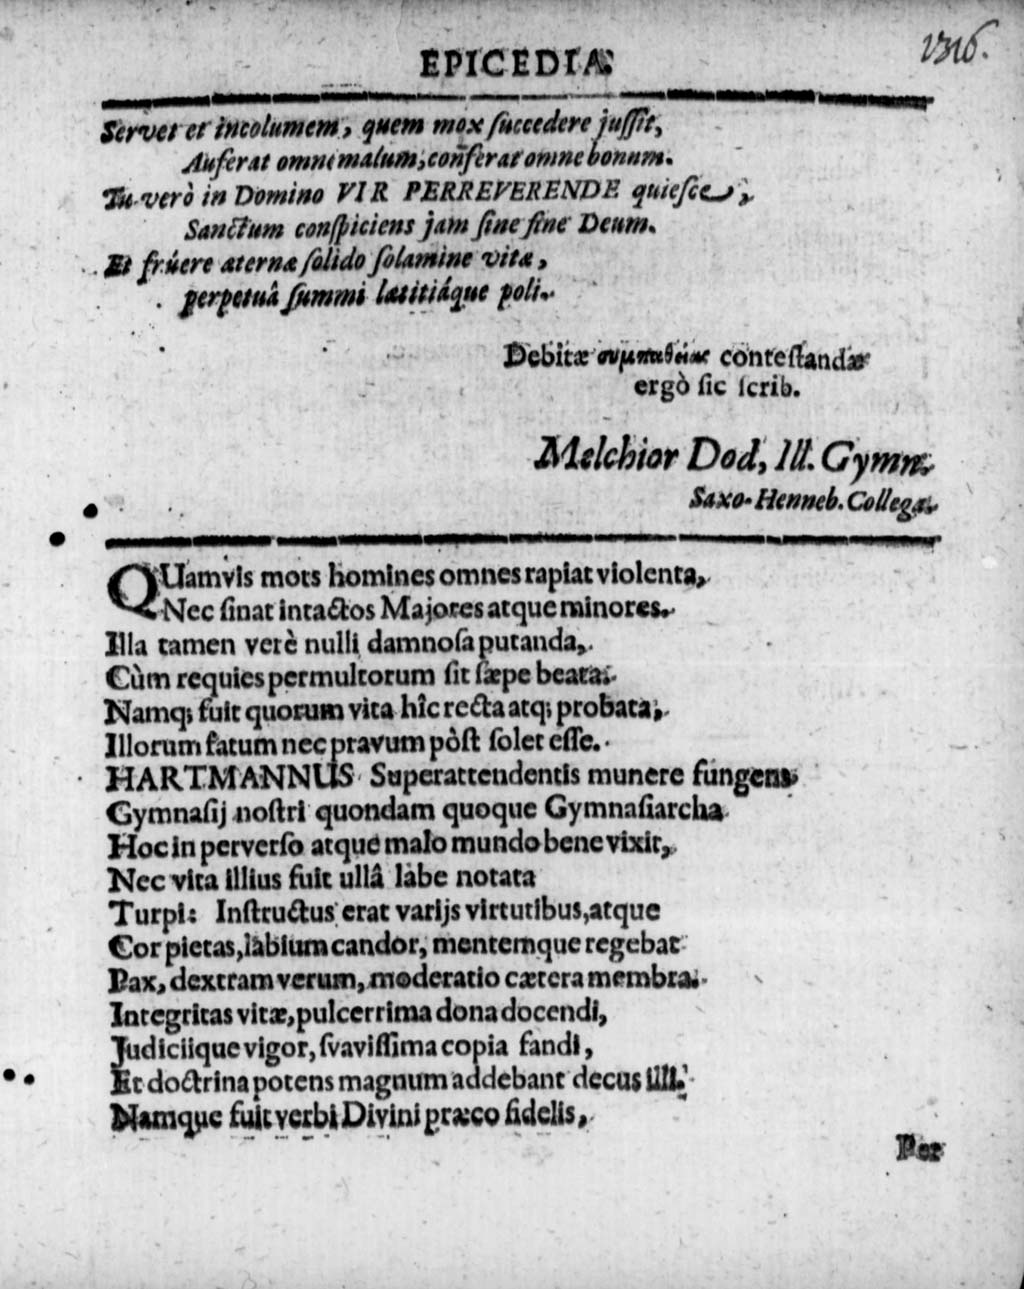 EPICEDIA.
1316.
Servet et incolumem, quem mox ſuccedere juſſit,
Auferat omne malum, conferat omne bonum.
Tu verò in Domino VIR PERREVERENDE quieſce,
Sanctum conſpiciens jam ſine fine Deum.
Et frúere æternæ ſolido ſolamine vitæ,
perpetuâ ſummi lætitiáque poli.
Debitæ συμπαθείας conteſtandæ
ergò ſic ſcrib.
Melchior Dod, Ill. Gymn.
Saxo-Henneb. Collega.
QUamvis mors homines omnes rapiat violenta,
Nec ſinat intactos Majores atque minores.
Illa tamen verè nulli damnoſa putanda,
Cùm requies permultorum ſit ſæpe beata.
Namq; fuit quorum vita hîc recta atq; probata,
Illorum fatum nec pravum pòſt ſolet eſſe.
HARTMANNUS Superattendentis munere fungens
Gymnaſij noſtri quondam quoque Gymnaſiarcha
Hoc in perverſo atque malo mundo bene vixit,
Nec vita illius fuit ullâ labe notata
Turpi: Inſtructus erat varijs virtutibus, atque
Cor pietas, labium candor, mentemque regebat
Pax, dextram verum, moderatio cætera membra.
Integritas vitæ, pulcerrima dona docendi,
Judiciique vigor, ſvaviſſima copia fandi,
Et doctrina potens magnum addebant decus illi.
Namque fuit verbi Divini præco fidelis,
Per